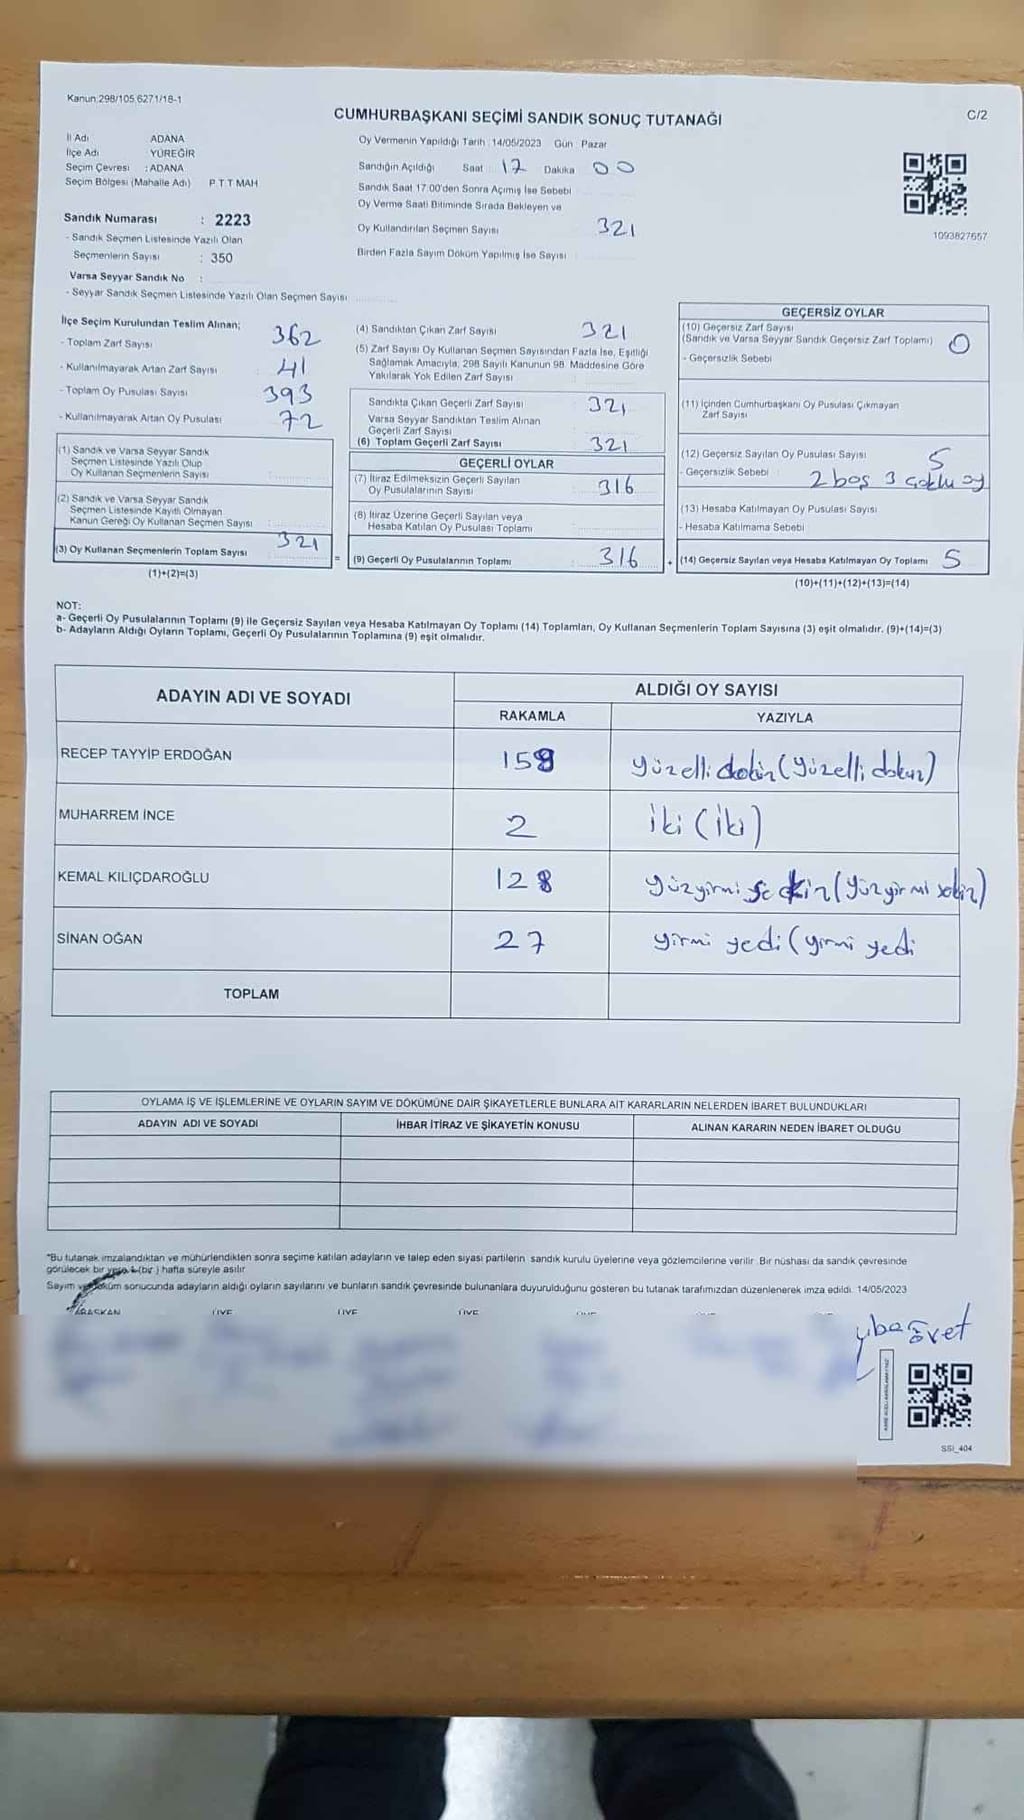 Kanun:298/105,6271/18-1
C/2
CUMHURBAŞKANI SEÇİMİ SANDIK SONUÇ TUTANAĞI
İl Adı ADANA
İlçe Adı YÜREĞİR
Seçim Çevresi : ADANA
Seçim Bölgesi (Mahalle Adı) P T T MAH
Oy Vermenin Yapıldığı Tarih : 14/05/2023 Gün : Pazar
Sandığın Açıldığı Saat 17 Dakika 00
Sandık Saat 17:00'den Sonra Açımış İse Sebebi
Oy Verme Saati Bitiminde Sırada Bekleyen ve
Oy Kullandırılan Seçmen Sayısı 321
Birden Fazla Sayım Döküm Yapılmış İse Sayısı
1093827657
Sandık Numarası : 2223
- Sandık Seçmen Listesinde Yazılı Olan
Seçmenlerin Sayısı : 350
Varsa Seyyar Sandık No :
- Seyyar Sandık Seçmen Listesinde Yazılı Olan Seçmen Sayısı
İlçe Seçim Kurulundan Teslim Alınan;
- Toplam Zarf Sayısı 362
- Kullanılmayarak Artan Zarf Sayısı 41
- Toplam Oy Pusulası Sayısı 393
- Kullanılmayarak Artan Oy Pusulası 72
(1) Sandık ve Varsa Seyyar Sandık
Seçmen Listesinde Yazılı Olup
Oy Kullanan Seçmenlerin Sayısı
(2) Sandık ve Varsa Seyyar Sandık
Seçmen Listesinde Kayıtlı Olmayan
Kanun Gereği Oy Kullanan Seçmen Sayısı
(3) Oy Kullanan Seçmenlerin Toplam Sayısı 321
(1)+(2)=(3)
=
(4) Sandıktan Çıkan Zarf Sayısı 321
(5) Zarf Sayısı Oy Kullanan Seçmen Sayısından Fazla İse, Eşitliği
Sağlamak Amacıyla; 298 Sayılı Kanunun 98. Maddesine Göre
Yakılarak Yok Edilen Zarf Sayısı
Sandıkta Çıkan Geçerli Zarf Sayısı 321
Varsa Seyyar Sandıktan Teslim Alınan
Geçerli Zarf Sayısı
(6) Toplam Geçerli Zarf Sayısı 321
GEÇERLİ OYLAR
(7) İtiraz Edilmeksizin Geçerli Sayılan
Oy Pusulalarının Sayısı 316
(8) İtiraz Üzerine Geçerli Sayılan veya
Hesaba Katılan Oy Pusulası Toplamı
(9) Geçerli Oy Pusulalarının Toplamı 316
+
GEÇERSİZ OYLAR
(10) Geçersiz Zarf Sayısı
(Sandık ve Varsa Seyyar Sandık Geçersiz Zarf Toplamı) 0
- Geçersizlik Sebebi
(11) İçinden Cumhurbaşkanı Oy Pusulası Çıkmayan
Zarf Sayısı
(12) Geçersiz Sayılan Oy Pusulası Sayısı 5
- Geçersizlik Sebebi 2 boş 3 çoklu oy
(13) Hesaba Katılmayan Oy Pusulası Sayısı
- Hesaba Katılmama Sebebi
(14) Geçersiz Sayılan veya Hesaba Katılmayan Oy Toplamı 5
(10)+(11)+(12)+(13)=(14)
NOT:
a- Geçerli Oy Pusulalarının Toplamı (9) ile Geçersiz Sayılan veya Hesaba Katılmayan Oy Toplamı (14) Toplamları, Oy Kullanan Seçmenlerin Toplam Sayısına (3) eşit olmalıdır. (9)+(14)=(3)
b- Adayların Aldığı Oyların Toplamı, Geçerli Oy Pusulalarının Toplamına (9) eşit olmalıdır.
ADAYIN ADI VE SOYADI
ALDIĞI OY SAYISI
RAKAMLA YAZIYLA
RECEP TAYYİP ERDOĞAN 159 yüzelli dokuz (yüzelli dokuz)
MUHARREM İNCE 2 iki (iki)
KEMAL KILIÇDAROĞLU 128 yüzyirmi sekiz (yüzyirmi sekiz)
SİNAN OĞAN 27 yirmi yedi (yirmi yedi
TOPLAM
OYLAMA İŞ VE İŞLEMLERİNE VE OYLARIN SAYIM VE DÖKÜMÜNE DAİR ŞİKAYETLERLE BUNLARA AİT KARARLARIN NELERDEN İBARET BULUNDUKLARI
ADAYIN ADI VE SOYADI İHBAR İTİRAZ VE ŞİKAYETİN KONUSU ALINAN KARARIN NEDEN İBARET OLDUĞU
*Bu tutanak imzalandıktan ve mühürlendikten sonra seçime katılan adayların ve talep eden siyasi partilerin sandık kurulu üyelerine veya gözlemcilerine verilir. Bir nüshası da sandık çevresinde
görülecek bir yere 1 (bir) hafta süreyle asılır.
Sayım ve döküm sonucunda adayların aldığı oyların sayılarını ve bunların sandık çevresinde bulunanlara duyurulduğunu gösteren bu tutanak tarafımızdan düzenlenerek imza edildi. 14/05/2023
BAŞKAN ÜYE ÜYE ÜYE
SSI_404